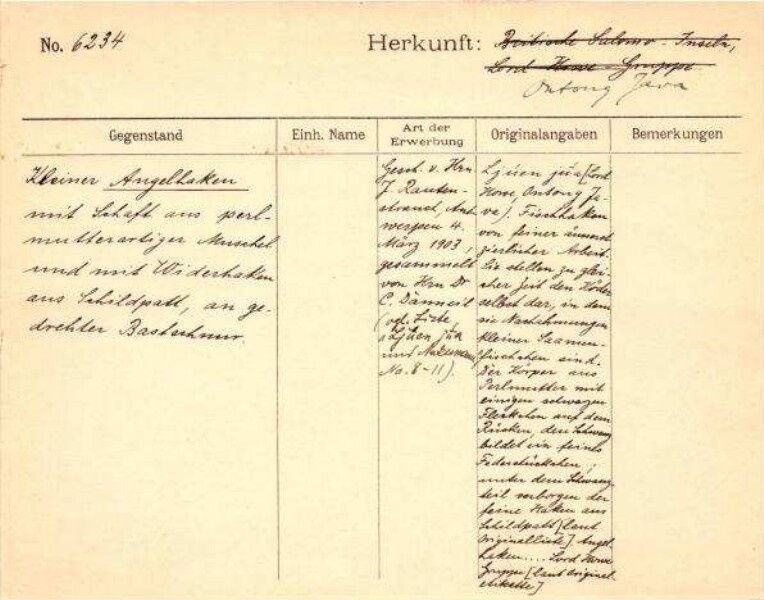 No. 6234
Herkunft: Britische Salomo-Inseln,
Lord Howe-Gruppe
Ontong Java
Gegenstand
Einh. Name
Art der Erwerbung
Originalangaben
Bemerkungen
Kleiner Angelhaken
mit Schaft aus perl-
mutterartiger Muschel
und mit Widerhaken
aus Schildpatt, an ge-
drehter Bastschnur.
Gesch. v. Hrn
J. Rauten-
strauch, Ant-
werpen 4.
März 1903,
gesammelt
von Hrn Dr
C. Dänneil
(vgl. Liste
Ljüen jüa
und
No. 8-11).
Ljüen jüa [Lord
Howe, Ontong Ja-
va). Fischhaken
von feiner äusserst
zierlicher Arbeit.
Sie stellen zu glei-
cher Zeit den Köder
selbst dar, in dem
sie Nachahmungen
kleiner Saamen-
fischchen sind.
Der Körper aus
Perlmutter mit
einigen schwarzen
Fleckchen auf dem
Rücken, den Schwanz
bildet ein feines
Federstückchen,
unter dem Schwanz-
teil verborgen der
feine Haken aus
Schildpatt [laut
Originalliste] Angel-
haken.... Lord Howe
Gruppe [laut Original-
etikette]